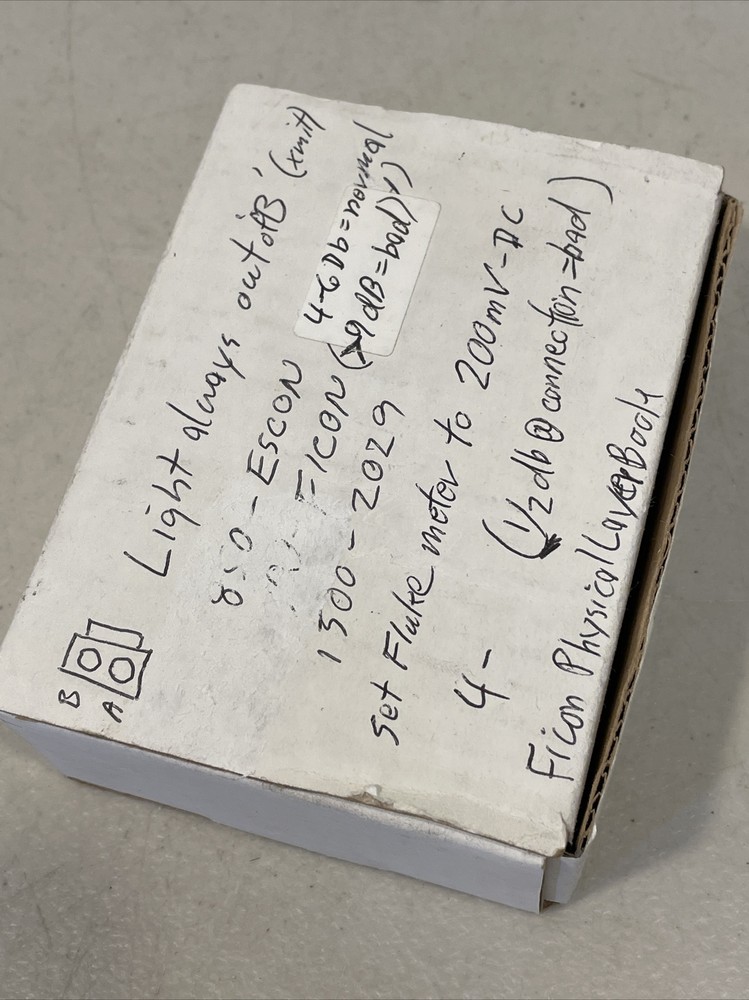 Light always out of 'B' (xmit)
850 - ESCON
4-6 Db = normal
- FICON (>9dB = bad)
1300 - 2029
Set Fluke meter to 200mV-DC
4 -
(1/2 db @ connection = bad)
Ficon Physical Layer Book
B
A